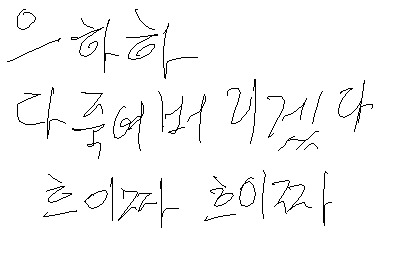 으하하
다죽여버리겠다
흐이짜 흐이짜